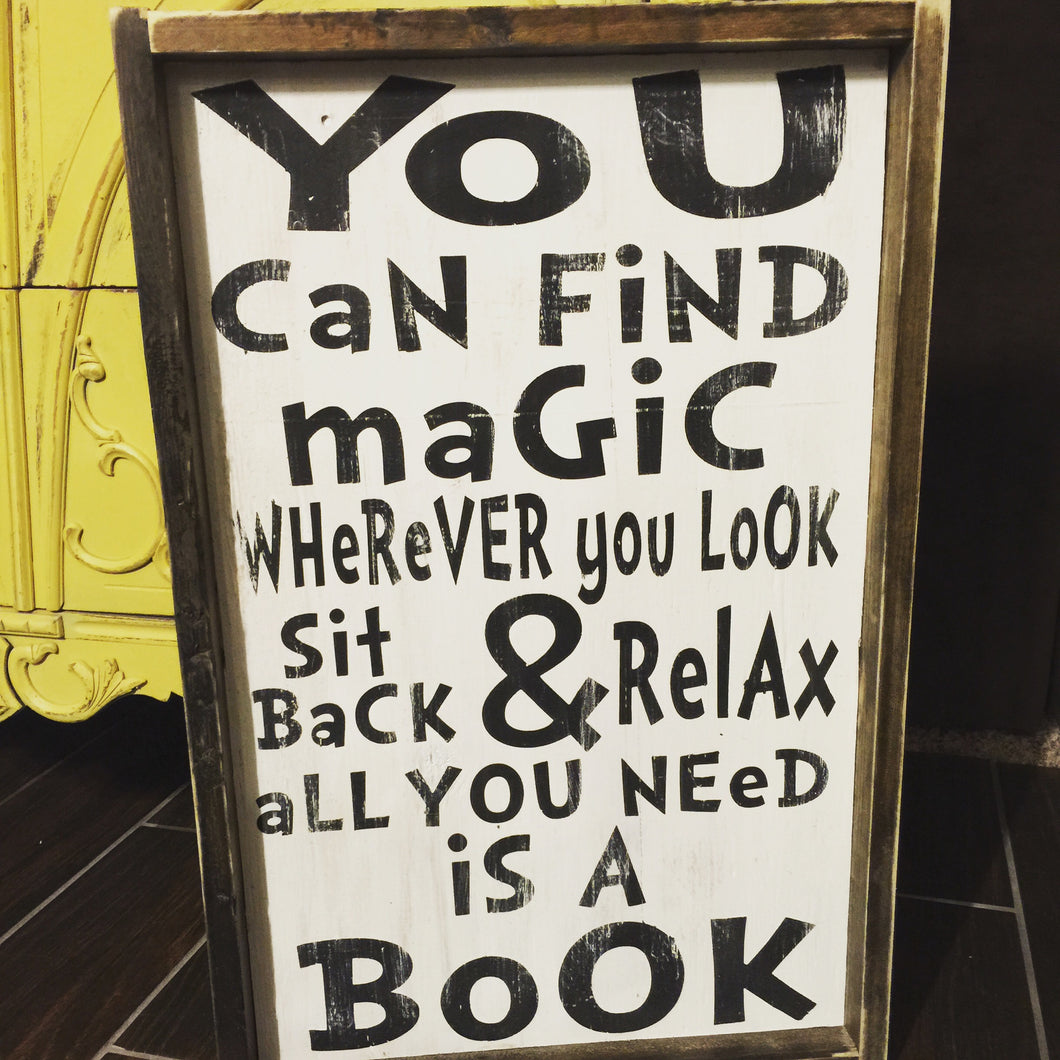 YoU
CaN FiND
maGiC
WHeReVER you LoOK
Sit BaCK & RelAx
aLL YOU NEeD
iS A
BoOK